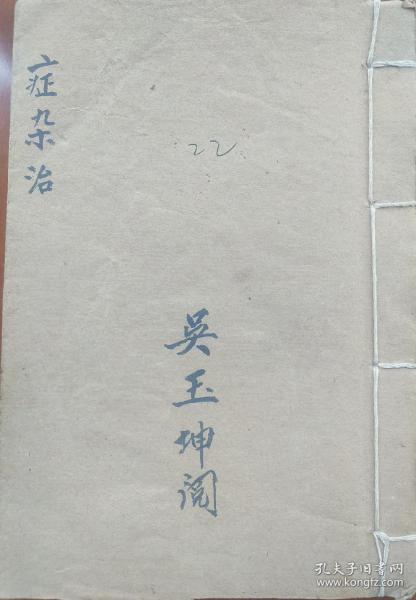 症杂治
22
吳玉坤阅
孔夫子旧书网
www.kongfz.com